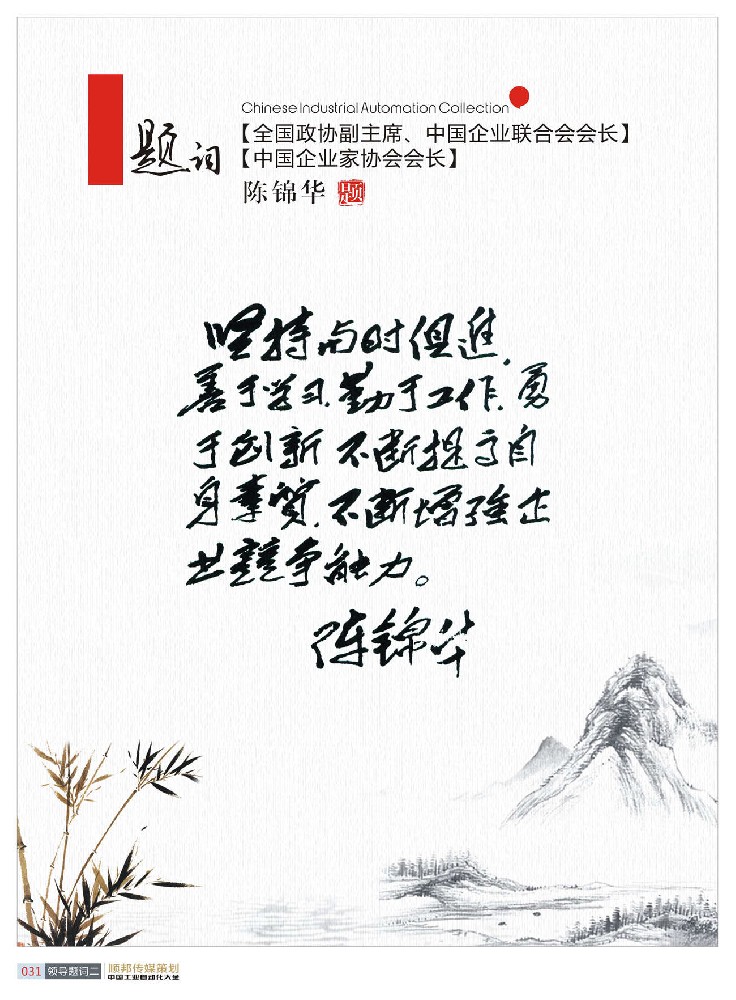 Chinese Industrial Automation Collection
题词
【全国政协副主席、中国企业联合会会长】
【中国企业家协会会长】
陈锦华 题
坚持与时俱進,
善于学习,勤于工作,勇
于创新 不断提高自
身素質,不断增强企
业競争能力。
陈锦华
031 领导题词二 顺邦传媒策划
中国工业自动化大全